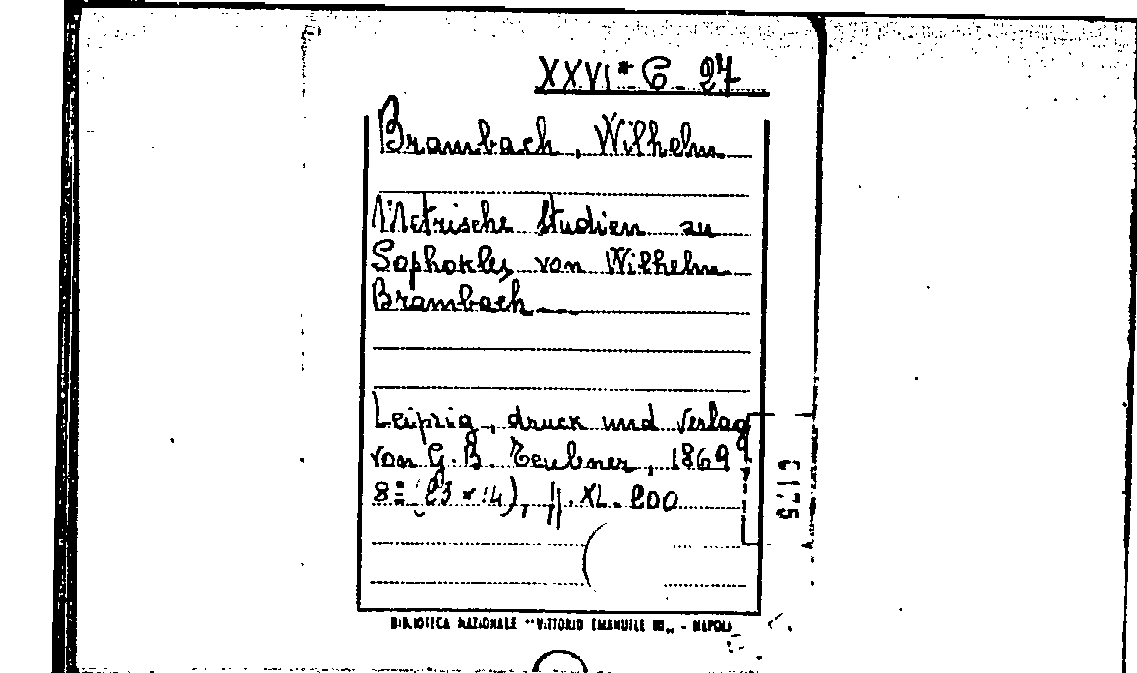 XXVI* G. 27
Brambach, Wilhelm
Metrische Studien zu
Sophokles von Wilhelm
Brambach
Leipzig, druck und Verlag
von G. B. Teubner, 1869
8º (23 × 14), pp. XL. 200
BIBLIOTECA NAZIONALE "VITTORIO EMANUELE III" - NAPOLI